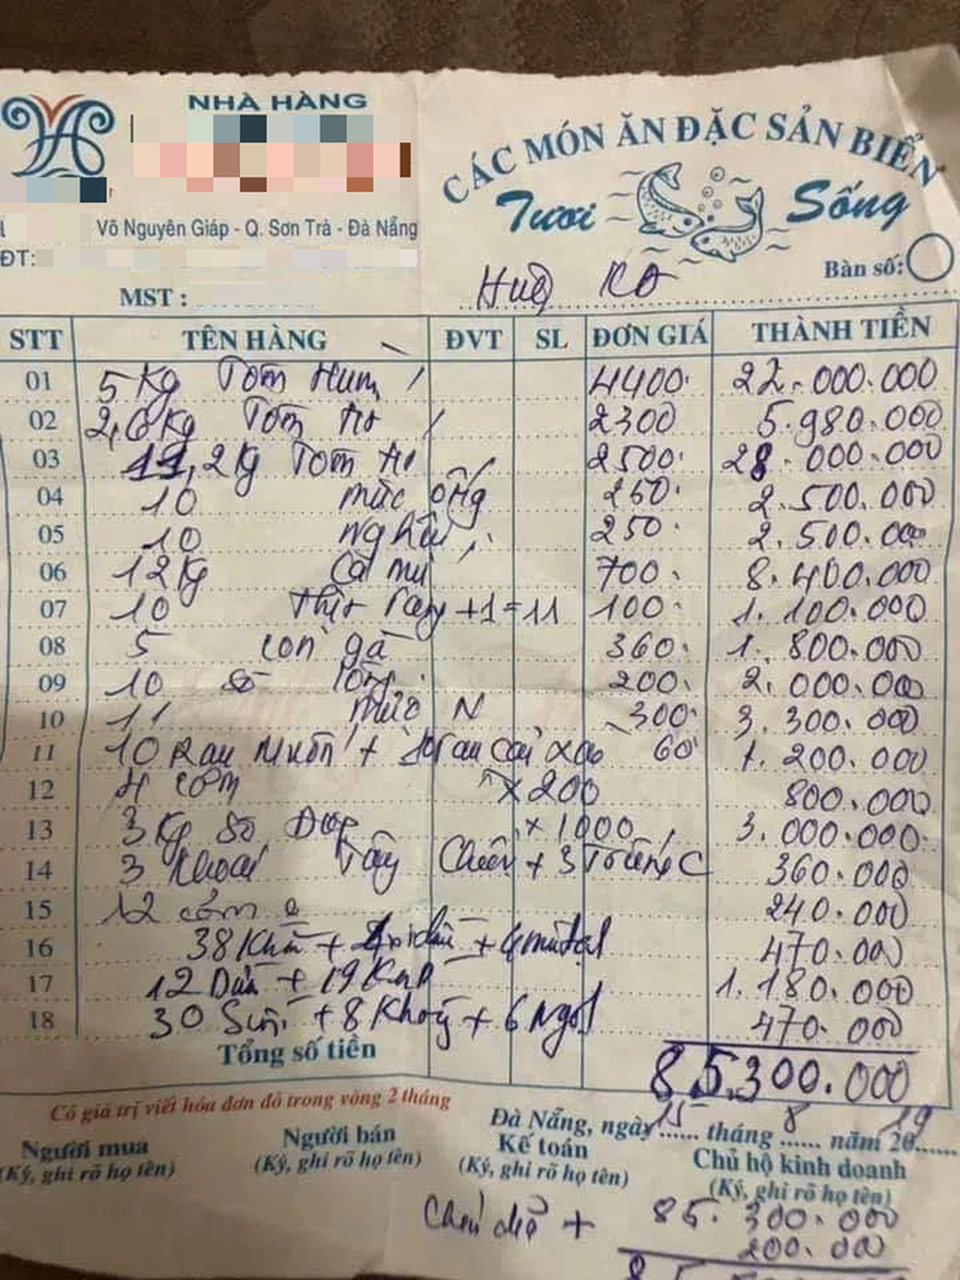 NHÀ HÀNG
CÁC MÓN ĂN ĐẶC SẢN BIỂN
Tươi Sống
Võ Nguyên Giáp - Q. Sơn Trà - Đà Nẵng
ĐT:
Bàn số:
MST :
STT TÊN HÀNG ĐVT SL ĐƠN GIÁ THÀNH TIỀN
01 5 Kg Tôm Hum 4400 22.000.000
02 2,6 Kg Tôm 2300 5.980.000
03 11,2 Kg Tôm 2500 28.000.000
04 10 mực ống 250 2.500.000
05 10 Nghêu 250 2.500.000
06 12 Kg Cá mú 700 8.400.000
07 10 Thịt +1=11 100 1.100.000
08 5 con gà 360 1.800.000
09 10 Sò lông 200 2.000.000
10 11 mực N 300 3.300.000
11 10 Rau Muốn + 10 rau cải xào 60 1.200.000
12 4 cơm x200 800.000
13 3 Kg Sò x1000 3.000.000
14 3 Khoai Tây Chiên + 3 Trứng C 360.000
15 12 cơm 240.000
16 38 Khăn + + 4 470.000
17 12 Dừa + 19 1.180.000
18 30 Suối + 8 + 6 Ngọt 470.000
Tổng số tiền 85.300.000
Có giá trị viết hóa đơn đỏ trong vòng 2 tháng
Đà Nẵng, ngày 15 tháng 8 năm 2019
Người mua Người bán Kế toán Chủ hộ kinh doanh
(Ký, ghi rõ họ tên) (Ký, ghi rõ họ tên) (Ký, ghi rõ họ tên) (Ký, ghi rõ họ tên)
+ 85.300.000
200.000